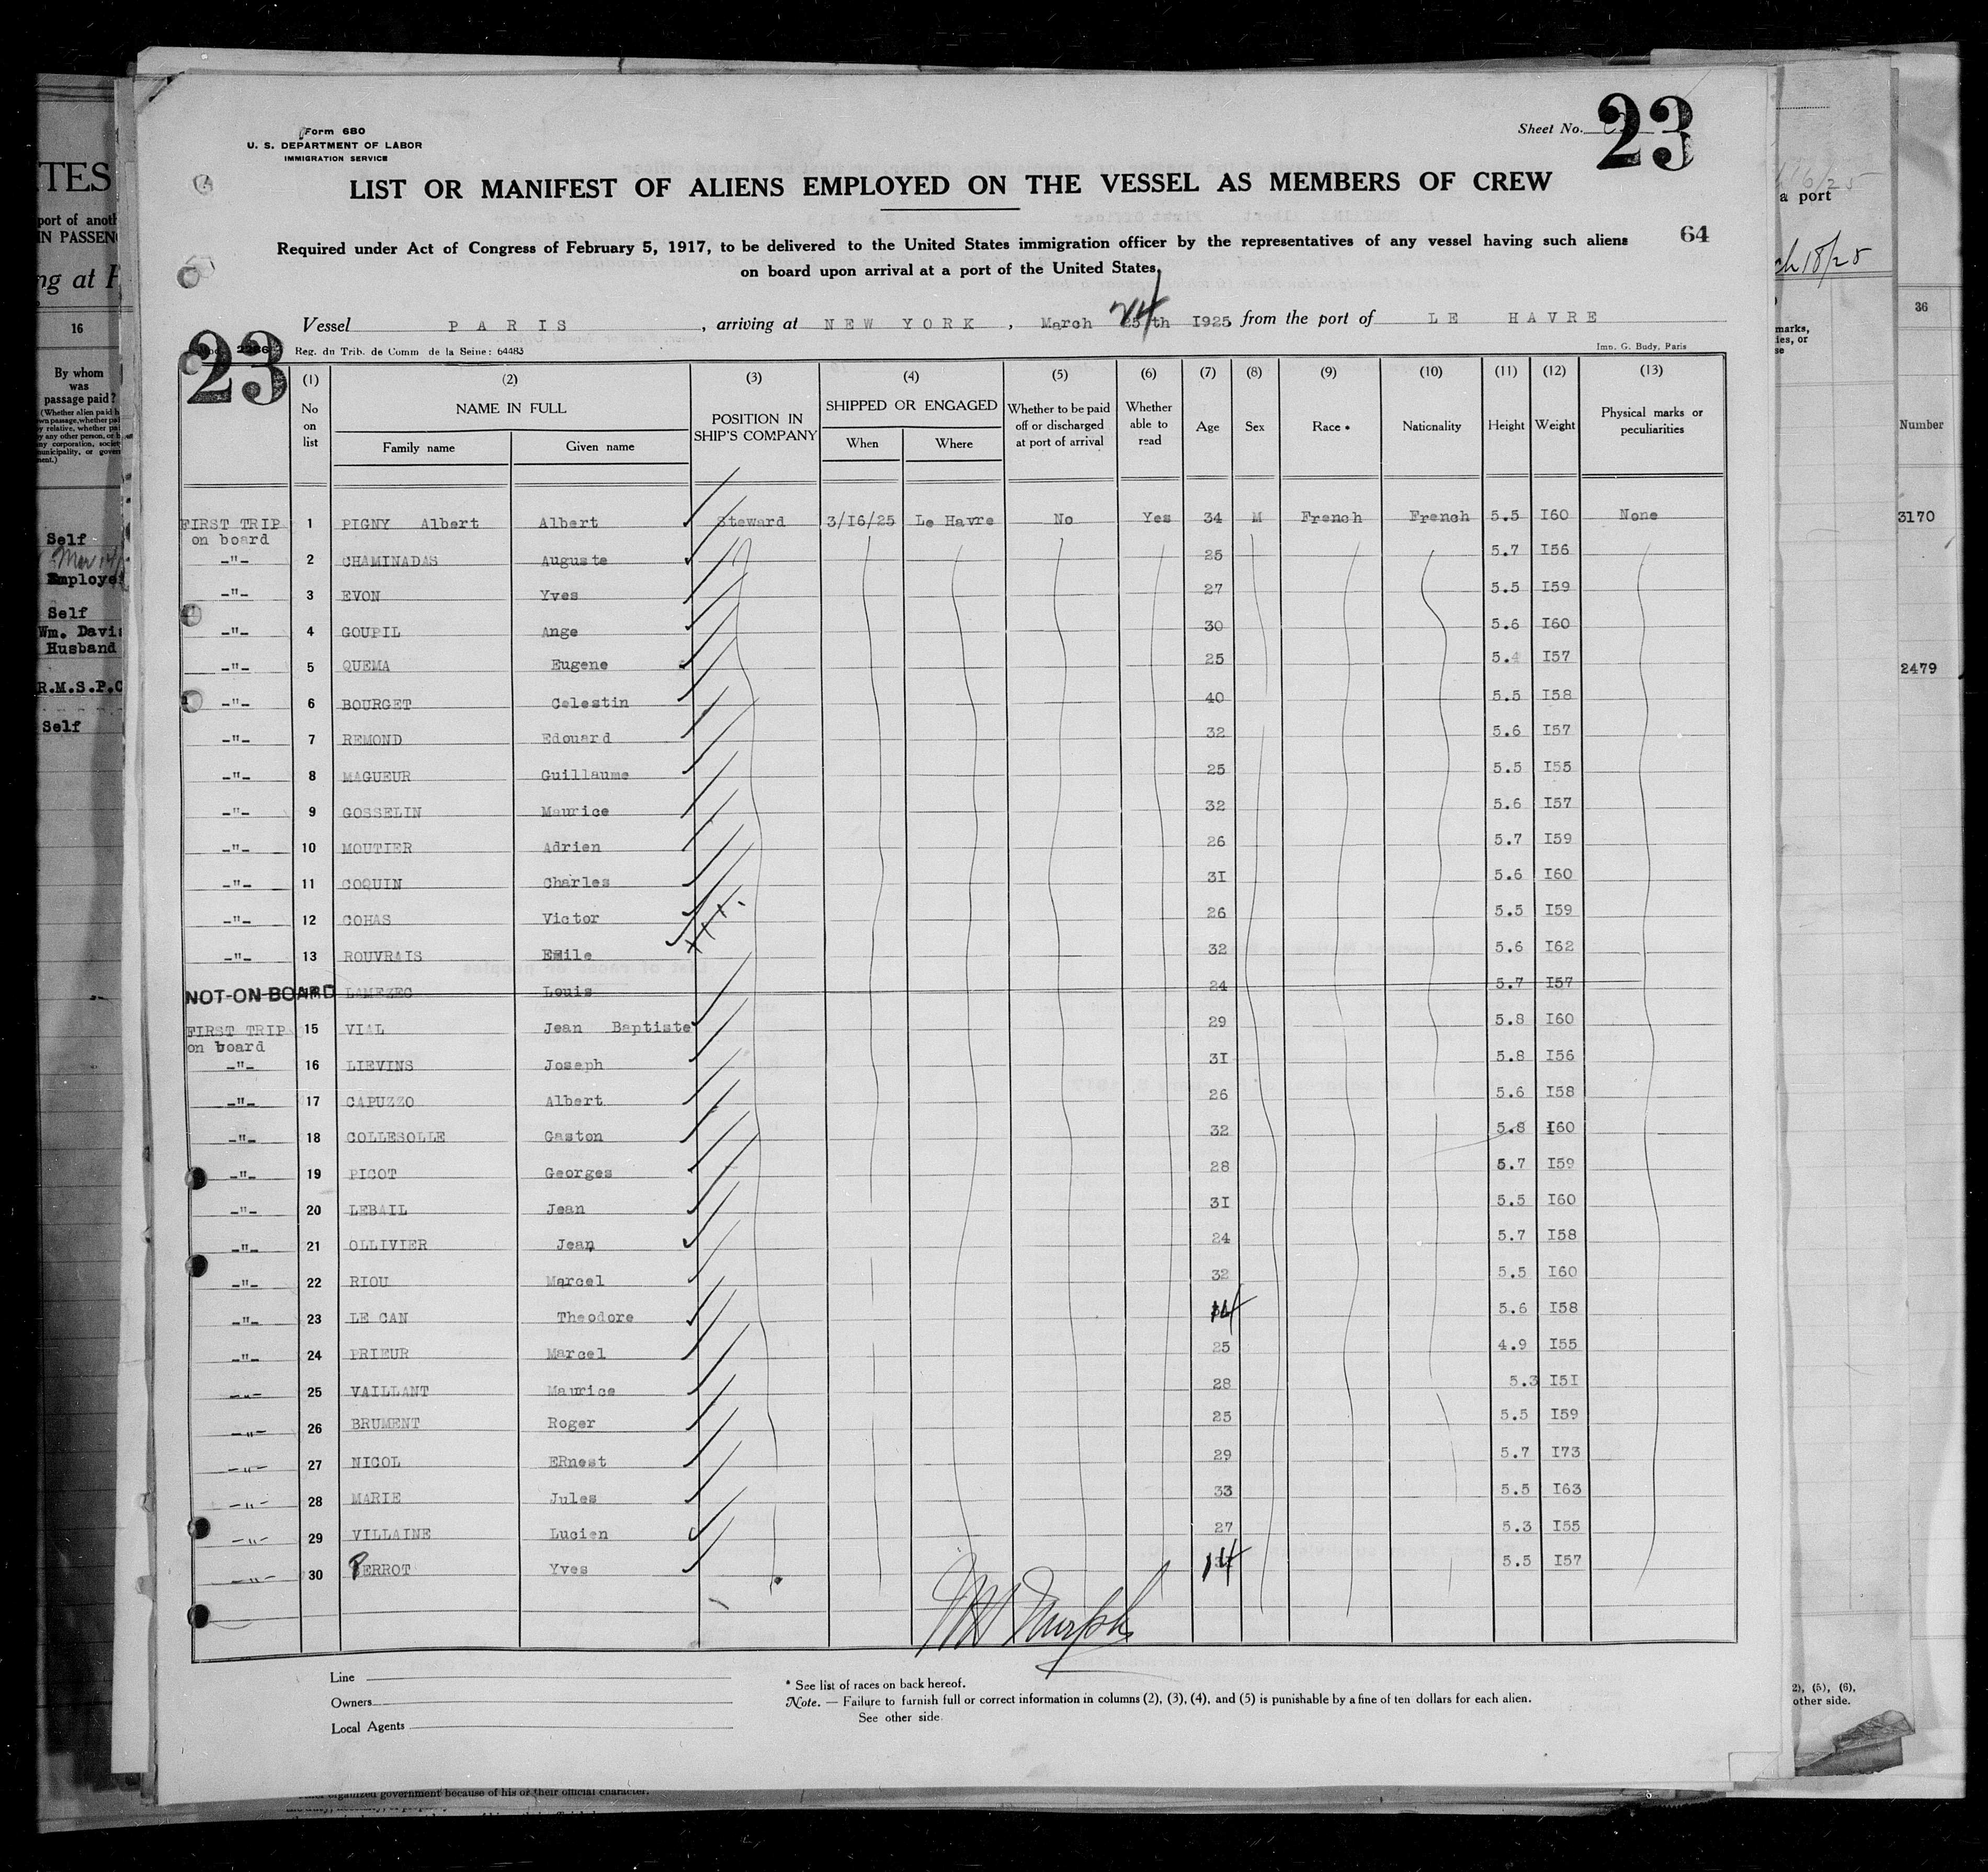 Form 680
U. S. DEPARTMENT OF LABOR
IMMIGRATION SERVICE
Sheet No. 23
LIST OR MANIFEST OF ALIENS EMPLOYED ON THE VESSEL AS MEMBERS OF CREW
Required under Act of Congress of February 5, 1917, to be delivered to the United States immigration officer by the representatives of any vessel having such aliens
on board upon arrival at a port of the United States.
64
Vessel PARIS, arriving at NEW YORK, March 25th 1925 from the port of LE HAVRE
24
23
Reg. du Trib. de Comm de la Seine: 64483
Imp. G. Budy, Paris
(1) (2) (3) (4) (5) (6) (7) (8) (9) (10) (11) (12) (13)
No on list
NAME IN FULL
Family name Given name
POSITION IN SHIP'S COMPANY
SHIPPED OR ENGAGED
When Where
Whether to be paid off or discharged at port of arrival
Whether able to read
Age Sex Race * Nationality Height Weight
Physical marks or peculiarities
FIRST TRIP on board 1 PIGNY Albert Albert Steward 3/16/25 Le Havre No Yes 34 M French French 5.5 I60 None
-"- 2 CHAMINADAS Auguste 25 5.7 I56
-"- 3 EVON Yves 27 5.5 I59
-"- 4 GOUPIL Ange 30 5.6 I60
-"- 5 QUEMA Eugene 25 5.4 I57
-"- 6 BOURGET Celestin 40 5.5 I58
-"- 7 REMOND Edouard 32 5.6 I57
-"- 8 MAGUEUR Guillaume 25 5.5 I55
-"- 9 GOSSELIN Maurice 32 5.6 I57
-"- 10 MOUTIER Adrien 26 5.7 I59
-"- 11 COQUIN Charles 3I 5.6 I60
-"- 12 COHAS Victor 26 5.5 I59
-"- 13 ROUVRAIS Emile 32 5.6 I62
NOT ON BOARD LAMEZEC Louis 24 5.7 I57
FIRST TRIP on board 15 VIAL Jean Baptiste 29 5.8 I60
-"- 16 LIEVINS Joseph 3I 5.8 I56
-"- 17 CAPUZZO Albert 26 5.6 I58
-"- 18 COLLESOLLE Gaston 32 5.8 I60
-"- 19 PICOT Georges 28 5.7 I59
-"- 20 LEBAIL Jean 3I 5.5 I60
-"- 21 OLLIVIER Jean 24 5.7 I58
-"- 22 RIOU Marcel 32 5.5 I60
-"- 23 LE CAN Theodore 14 5.6 I58
-"- 24 PRIEUR Marcel 25 4.9 I55
-"- 25 VAILLANT Maurice 28 5.3 I5I
-"- 26 BRUMENT Roger 25 5.5 I59
-"- 27 NICOL ERnest 29 5.7 I73
-"- 28 MARIE Jules 33 5.5 I63
-"- 29 VILLAINE Lucien 27 5.3 I55
-"- 30 PERROT Yves 14 5.5 I57
Line
Owners
Local Agents
* See list of races on back hereof.
Note. — Failure to furnish full or correct information in columns (2), (3), (4), and (5) is punishable by a fine of ten dollars for each alien.
See other side.
TES
port of anoth
IN PASSEN
ng at
16
By whom
was
passage paid?
Self
Employe
Self
Wm. Davi
Husband
R.M.S.P.C
Self
a port
ch 18/25
36
marks,
ies, or
se
Number
3170
2479
2), (5), (6),
other side.
organized government because of his or their official character.